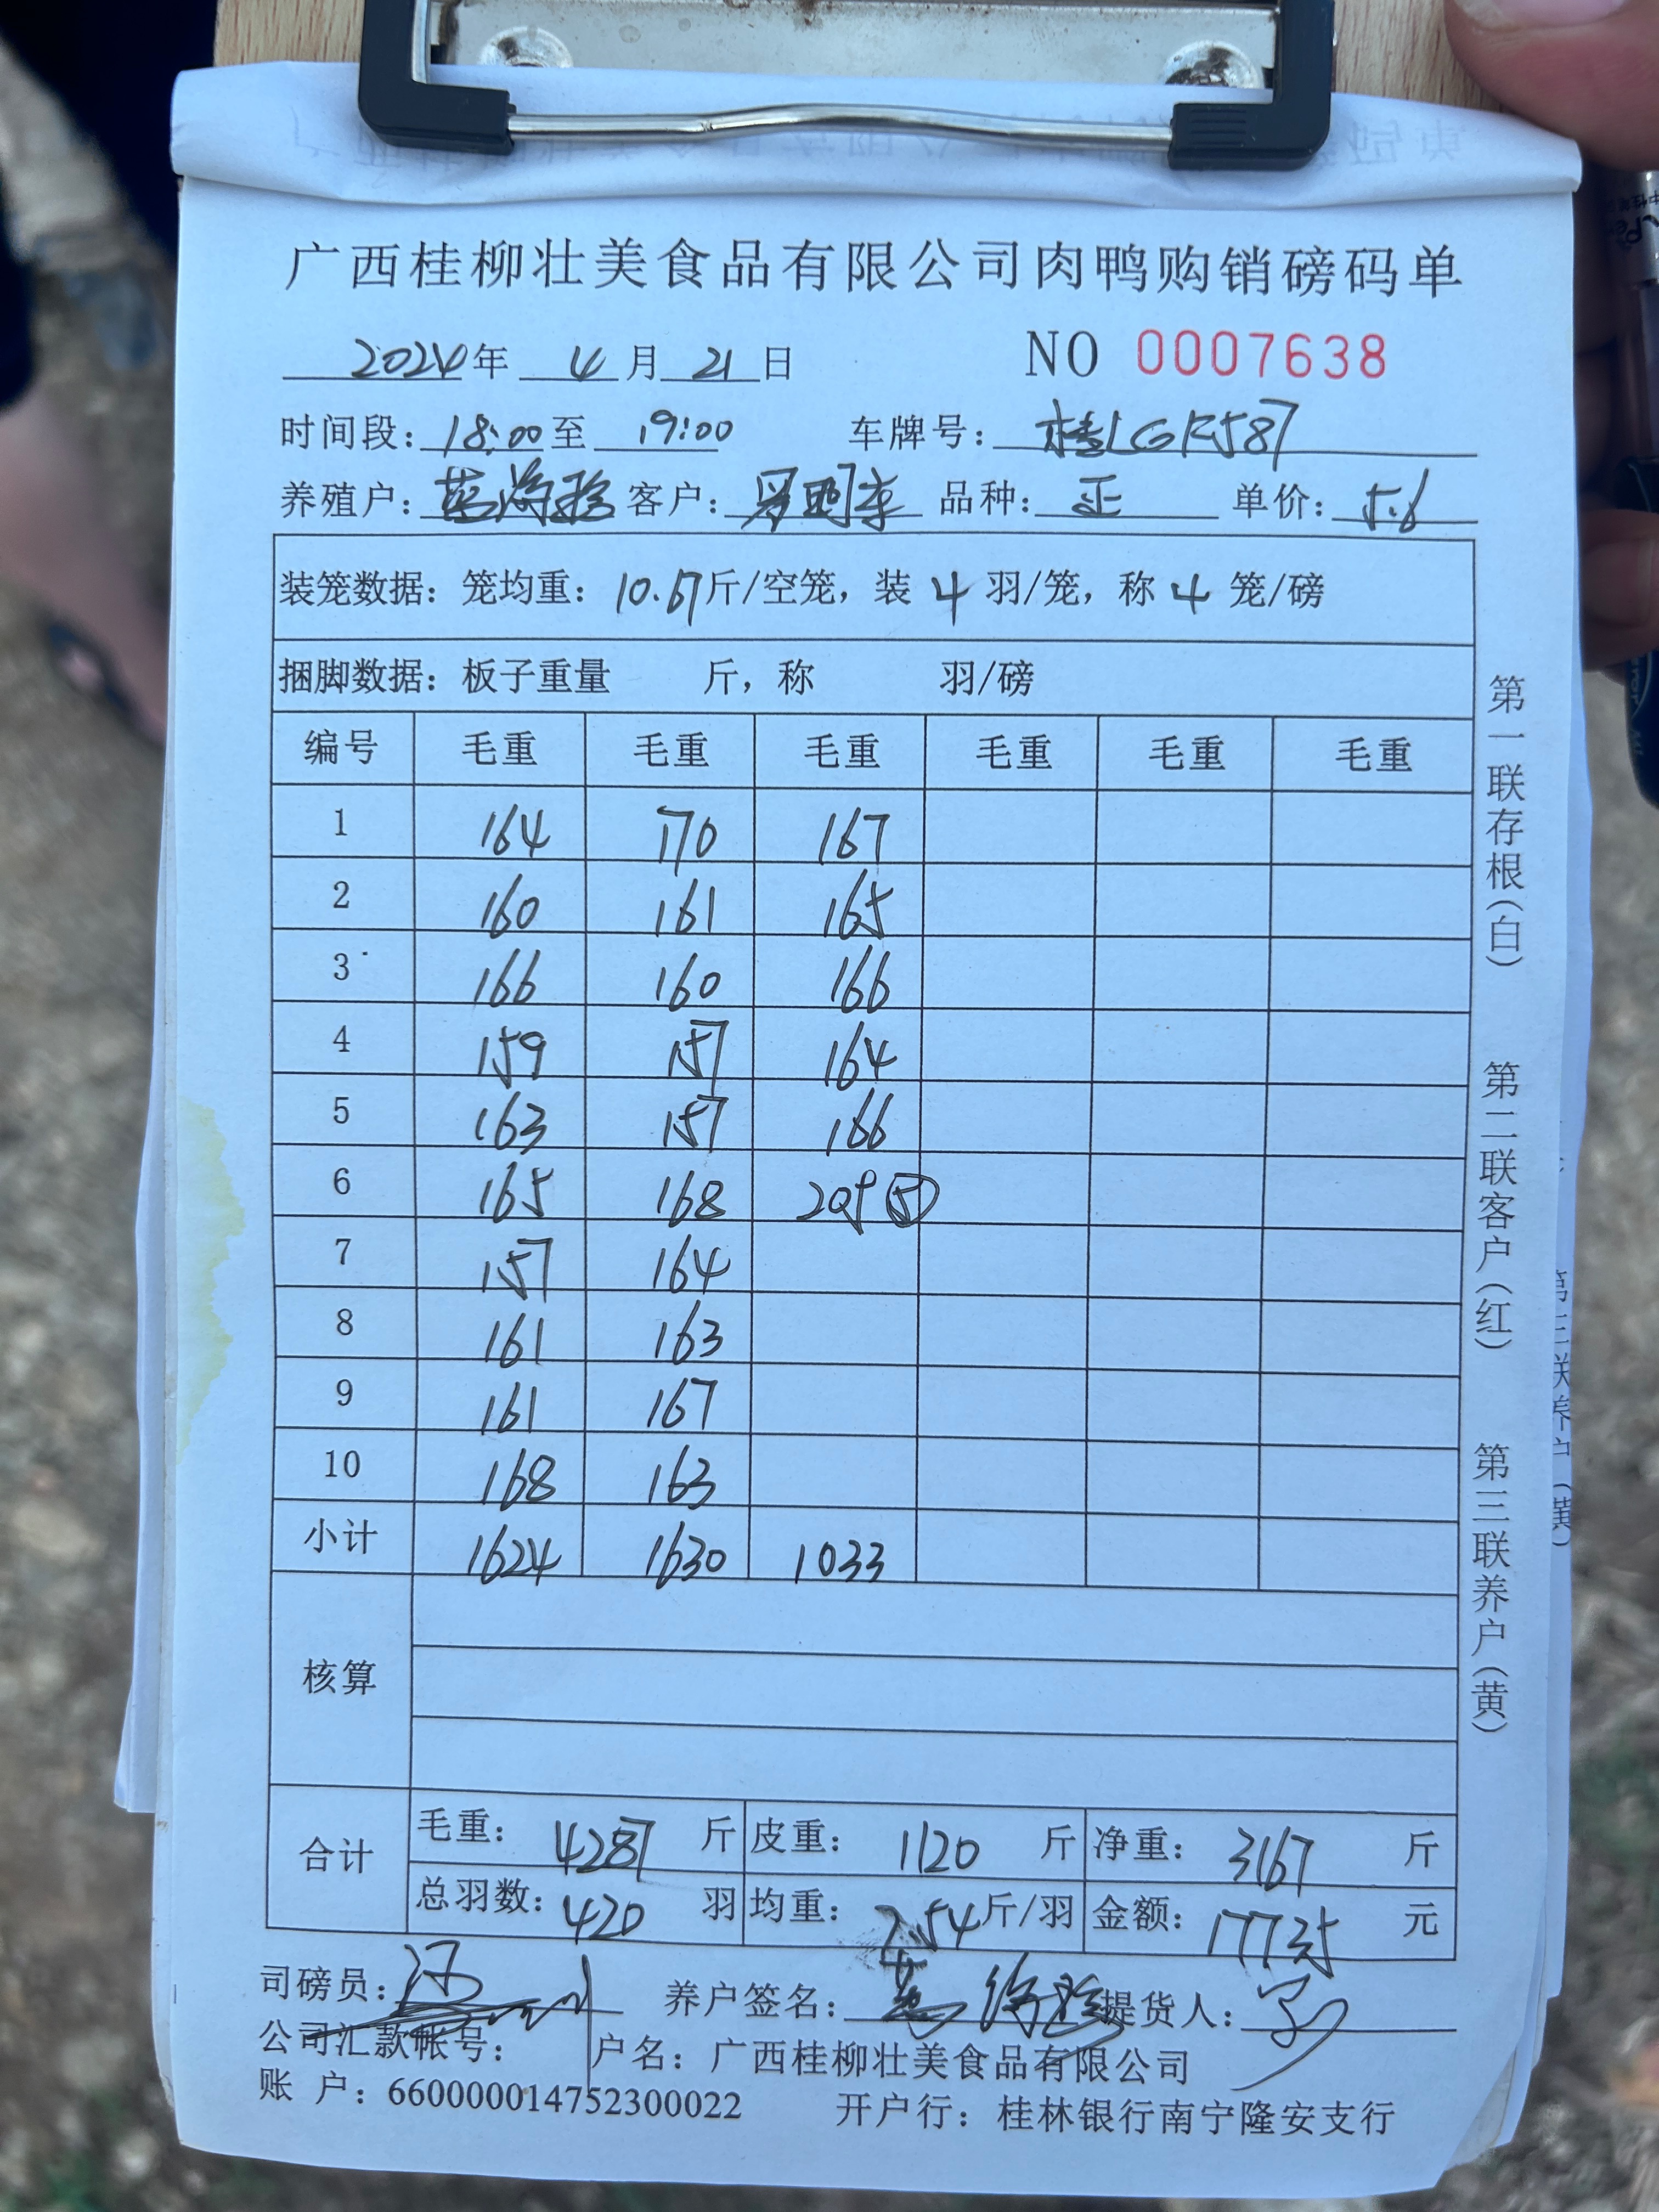 广西桂柳壮美食品有限公司肉鸭购销磅码单
2024年 4月21日 NO 0007638
时间段：18:00至 19:00 车牌号：桂LGR587
养殖户： 客户： 品种：正 单价：5.6
装笼数据：笼均重：10.67斤/空笼，装 4 羽/笼，称 4 笼/磅
捆脚数据：板子重量 斤，称 羽/磅
编号 毛重 毛重 毛重 毛重 毛重 毛重
1 164 170 167
2 160 161 165
3 166 160 166
4 159 157 164
5 163 157 166
6 165 168 205 ⑤
7 157 164
8 161 163
9 161 167
10 168 163
小计 1624 1630 1033
核算
合计 毛重：4287 斤 皮重：1120 斤 净重：3167 斤
总羽数：420 羽 均重：7.54斤/羽 金额：17735 元
司磅员： 养户签名： 提货人：
公司汇款帐号： 户名：广西桂柳壮美食品有限公司
账 户：660000014752300022 开户行：桂林银行南宁隆安支行
第一联存根(白) 第二联客户(红) 第三联养户(黄)